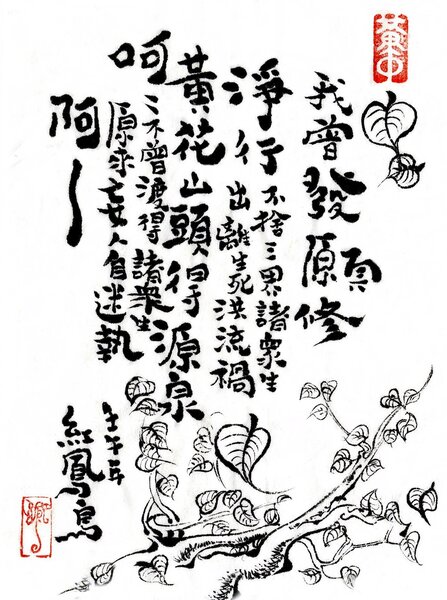 我曾發願修
淨行不捨三界諸衆生
出離生死洪流禍
黃花山頭得源泉
呵〻不曾渡得諸衆生
原來妄人自迷執
阿
壬午年
紅鳳鳥